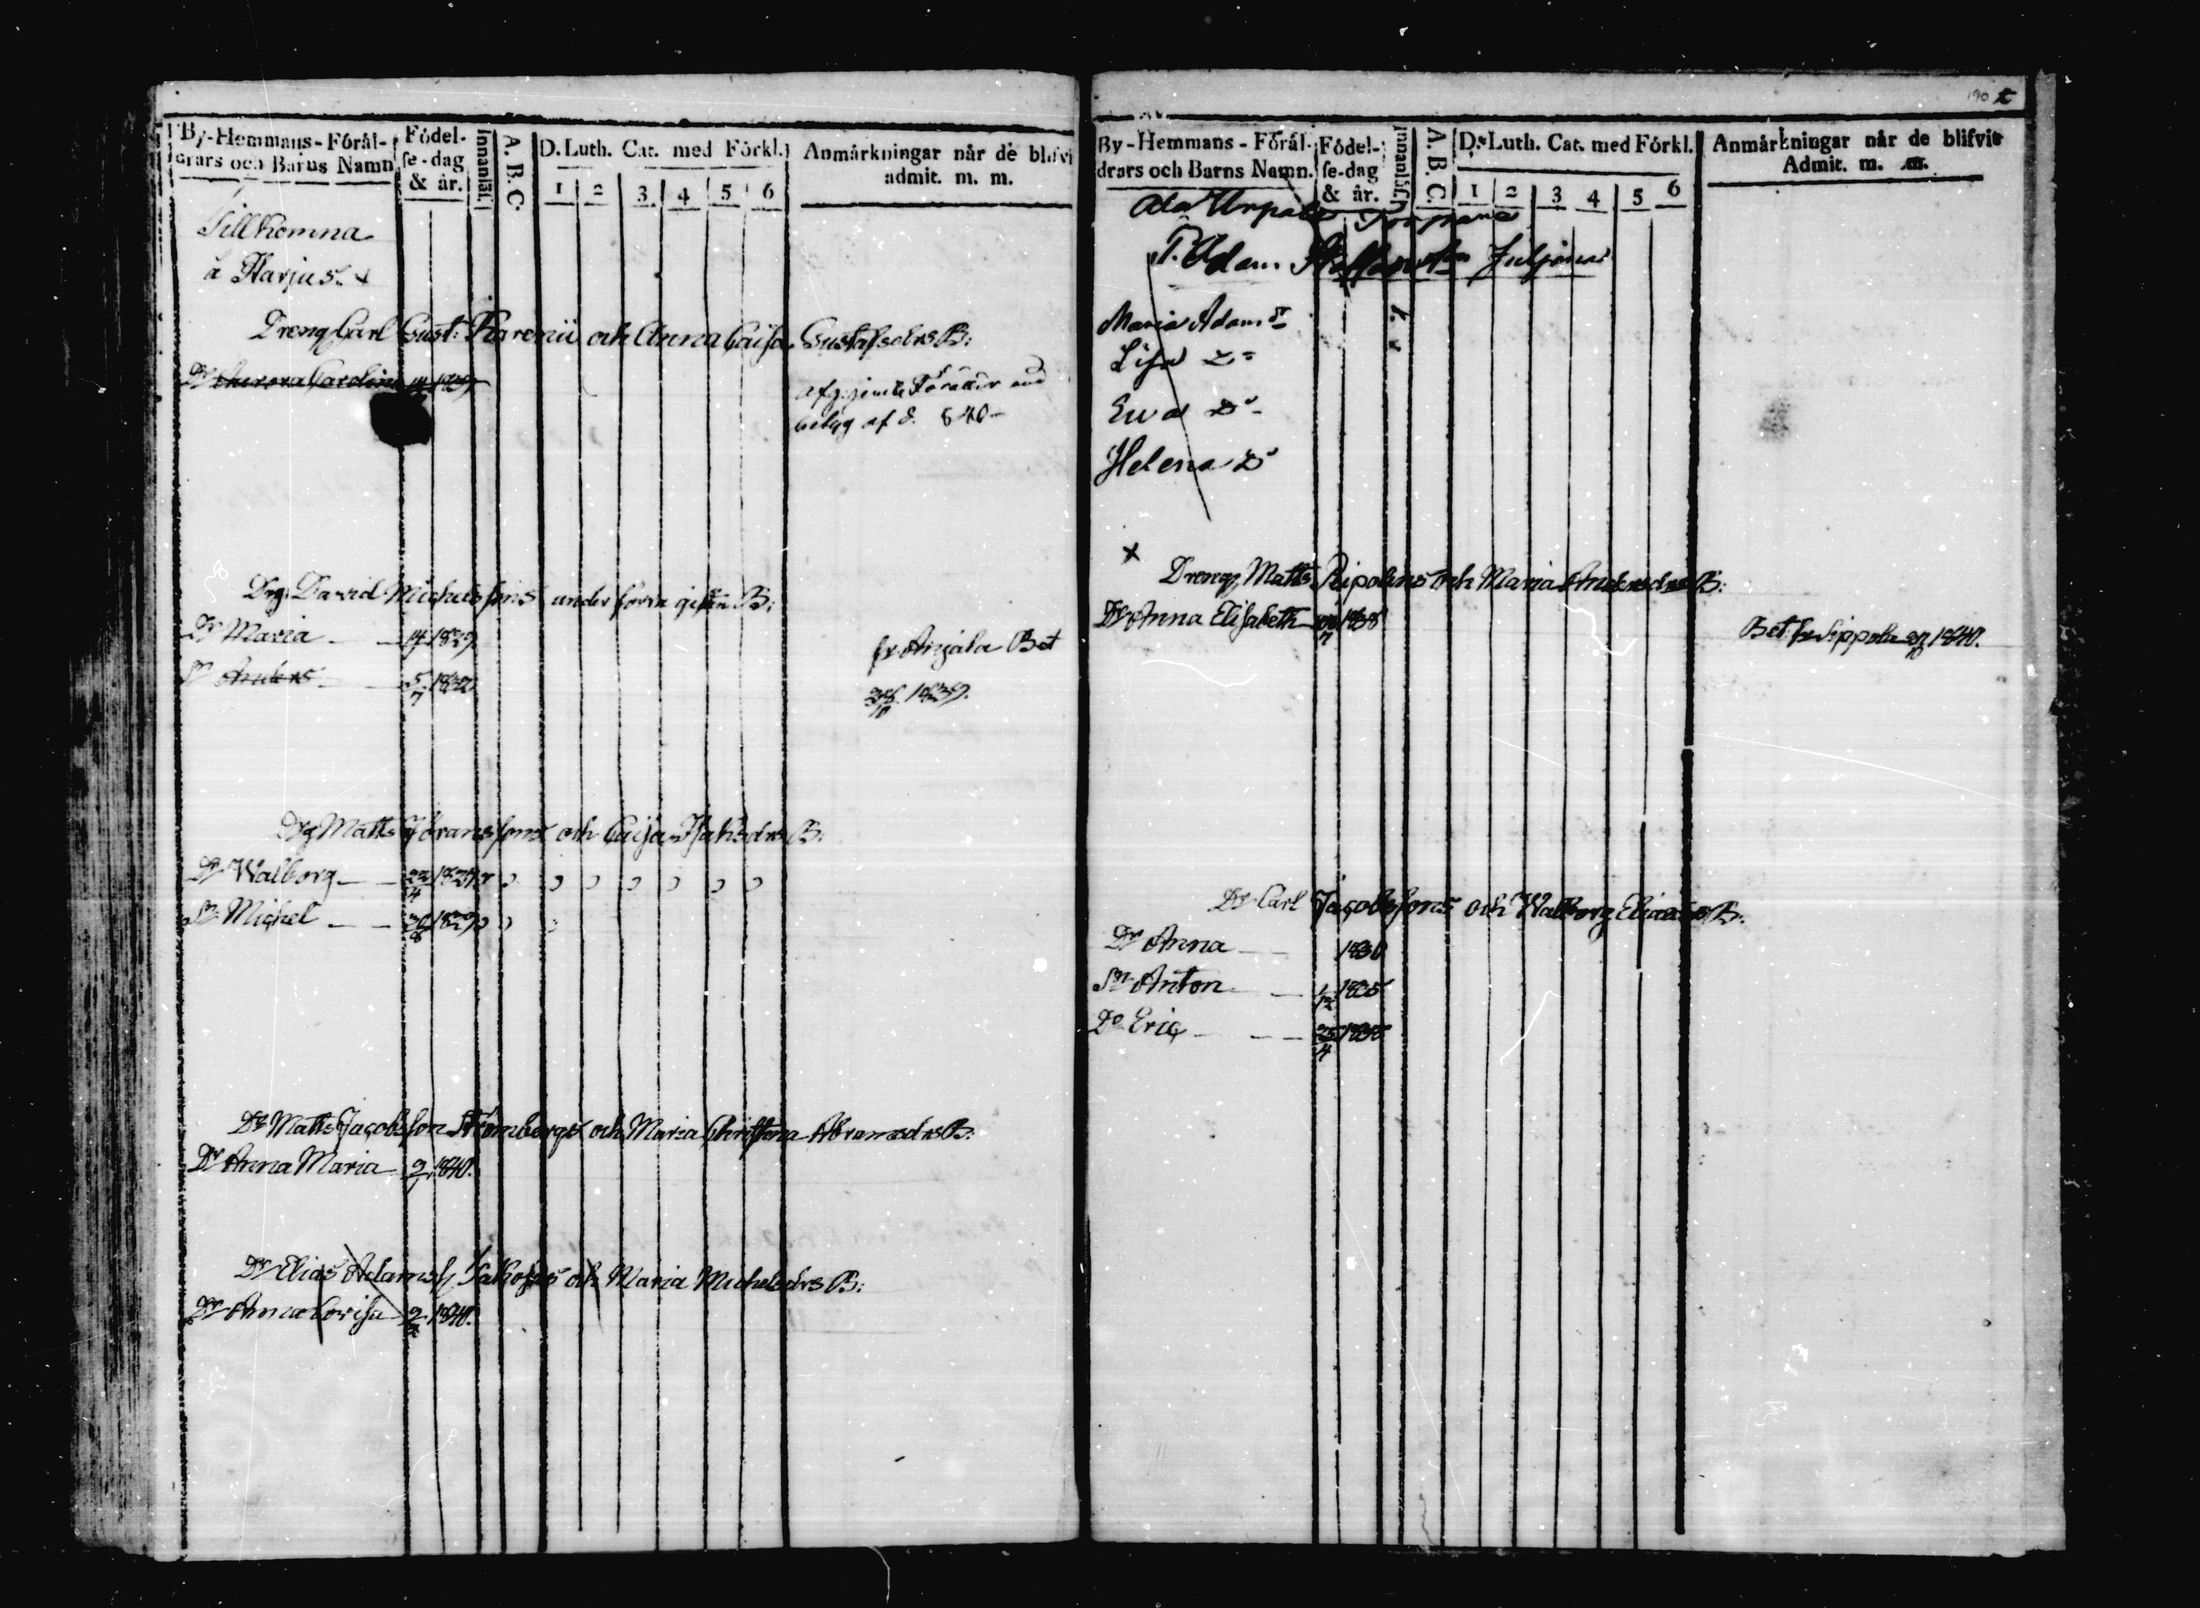 By-Hemmans-Förål-
drars och Barns Namn
Födel-
se-dag
& år.
Innanläs.
A. B. C.
D. Luth. Cat. med Förkl.
1 2 3 4 5 6
Anmärkningar når de blifvi
admit. m. m.
Tillkomna
å Harjus.
Dreng Carl Gust: och Anna Caisa Gustafsdrs B:
Dr Aurora Carolina 1839
belyg af d. 840
Drg. David Michelssons under förra giftet B:
Dr Maria 1829
Sn Anders 5/7 1832
fr Anjala Bet
1839.
Drg Matts Göranssons och Caisa Isaksdrs B:
Dr Walborg 22/4
Sn Michel 1829
Dr Matts Jacobsson Strömbergs och Maria Christina Abramsdrs B:
Dr Anna Maria 2/1 1840.
Dr Elias Adamss. och Maria Michelsdrs B:
Dr Anna Lovisa 1840.
190
By-Hemmans-Förål-
drars och Barns Namn.
Födel-
se-dag
& år.
Innanläs.
A. B. C.
D. Luth. Cat. med Förkl.
1 2 3 4 5 6
Anmärkningar når de blifvit
Admit. m. m.
Ala Urpala
T. Adam
Maria Adamsdr
Lisa Do
Eva Do
Helena Do
Dreng Matts Ripolins och Maria Andersdrs B:
Dr Anna Elisabeth 1838
Bet. fr Sippola 1840.
Dr Carl Jacobssons och Walborg Eliaedrs B:
Dr Anna 1830
Sn Anton 1/12 1835
Do Eric 25/4 1838